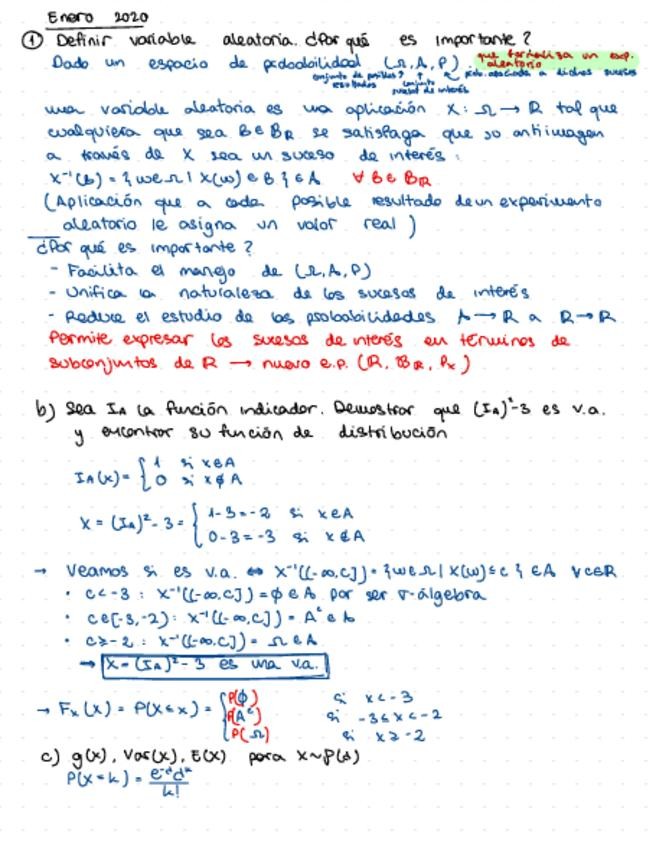 Enero 2020
① Definir variable aleatoria. ¿Por qué es importante?
Dado un espacio de probabilidad (Ω, A, P) que formaliza un exp. aleatorio
conjunto de posibles resultados conjunto sucesos de interés prob. asociada a dichos sucesos
una variable aleatoria es una aplicación X: Ω → R tal que
cualquiera que sea B ∈ B_R se satisfaga que su antiimagen
a través de X sea un suceso de interés:
X⁻¹(b) = {w ∈ Ω | X(w) ∈ B} ∈ A ∀ B ∈ B_R
(Aplicación que a cada posible resultado de un experimento
aleatorio le asigna un valor real)
¿Por qué es importante?
- Facilita el manejo de (Ω, A, P)
- Unifica la naturaleza de los sucesos de interés
- Reduce el estudio de las probabilidades A → R a R → R
Permite expresar los sucesos de interés en términos de
subconjuntos de R → nuevo e.p. (R, B_R, P_X)
b) Sea I_A la función indicador. Demostrar que (I_A)²-3 es v.a.
y encontrar su función de distribución
I_A(x) = { 1 si x ∈ A
0 si x ∉ A
X = (I_A)² - 3 = { 1-3 = -2 si x ∈ A
0-3 = -3 si x ∉ A
→ Veamos si es v.a. ⇔ X⁻¹((-∞, c]) = {w ∈ Ω | X(w) ≤ c} ∈ A ∀ c ∈ R
· c < -3 : X⁻¹((-∞, c]) = ∅ ∈ A por ser σ-álgebra
· c ∈ [-3, -2) : X⁻¹((-∞, c]) = Aᶜ ∈ A
· c ≥ -2 : X⁻¹((-∞, c]) = Ω ∈ A
→ X = (I_A)² - 3 es una v.a.
→ F_X(x) = P(X ≤ x) = { P(∅) si x < -3
P(Aᶜ) si -3 ≤ x < -2
P(Ω) si x ≥ -2
c) g(x), Var(x), E(x) para X ~ P(λ)
P(X = k) = e^-λ λ^k / k!